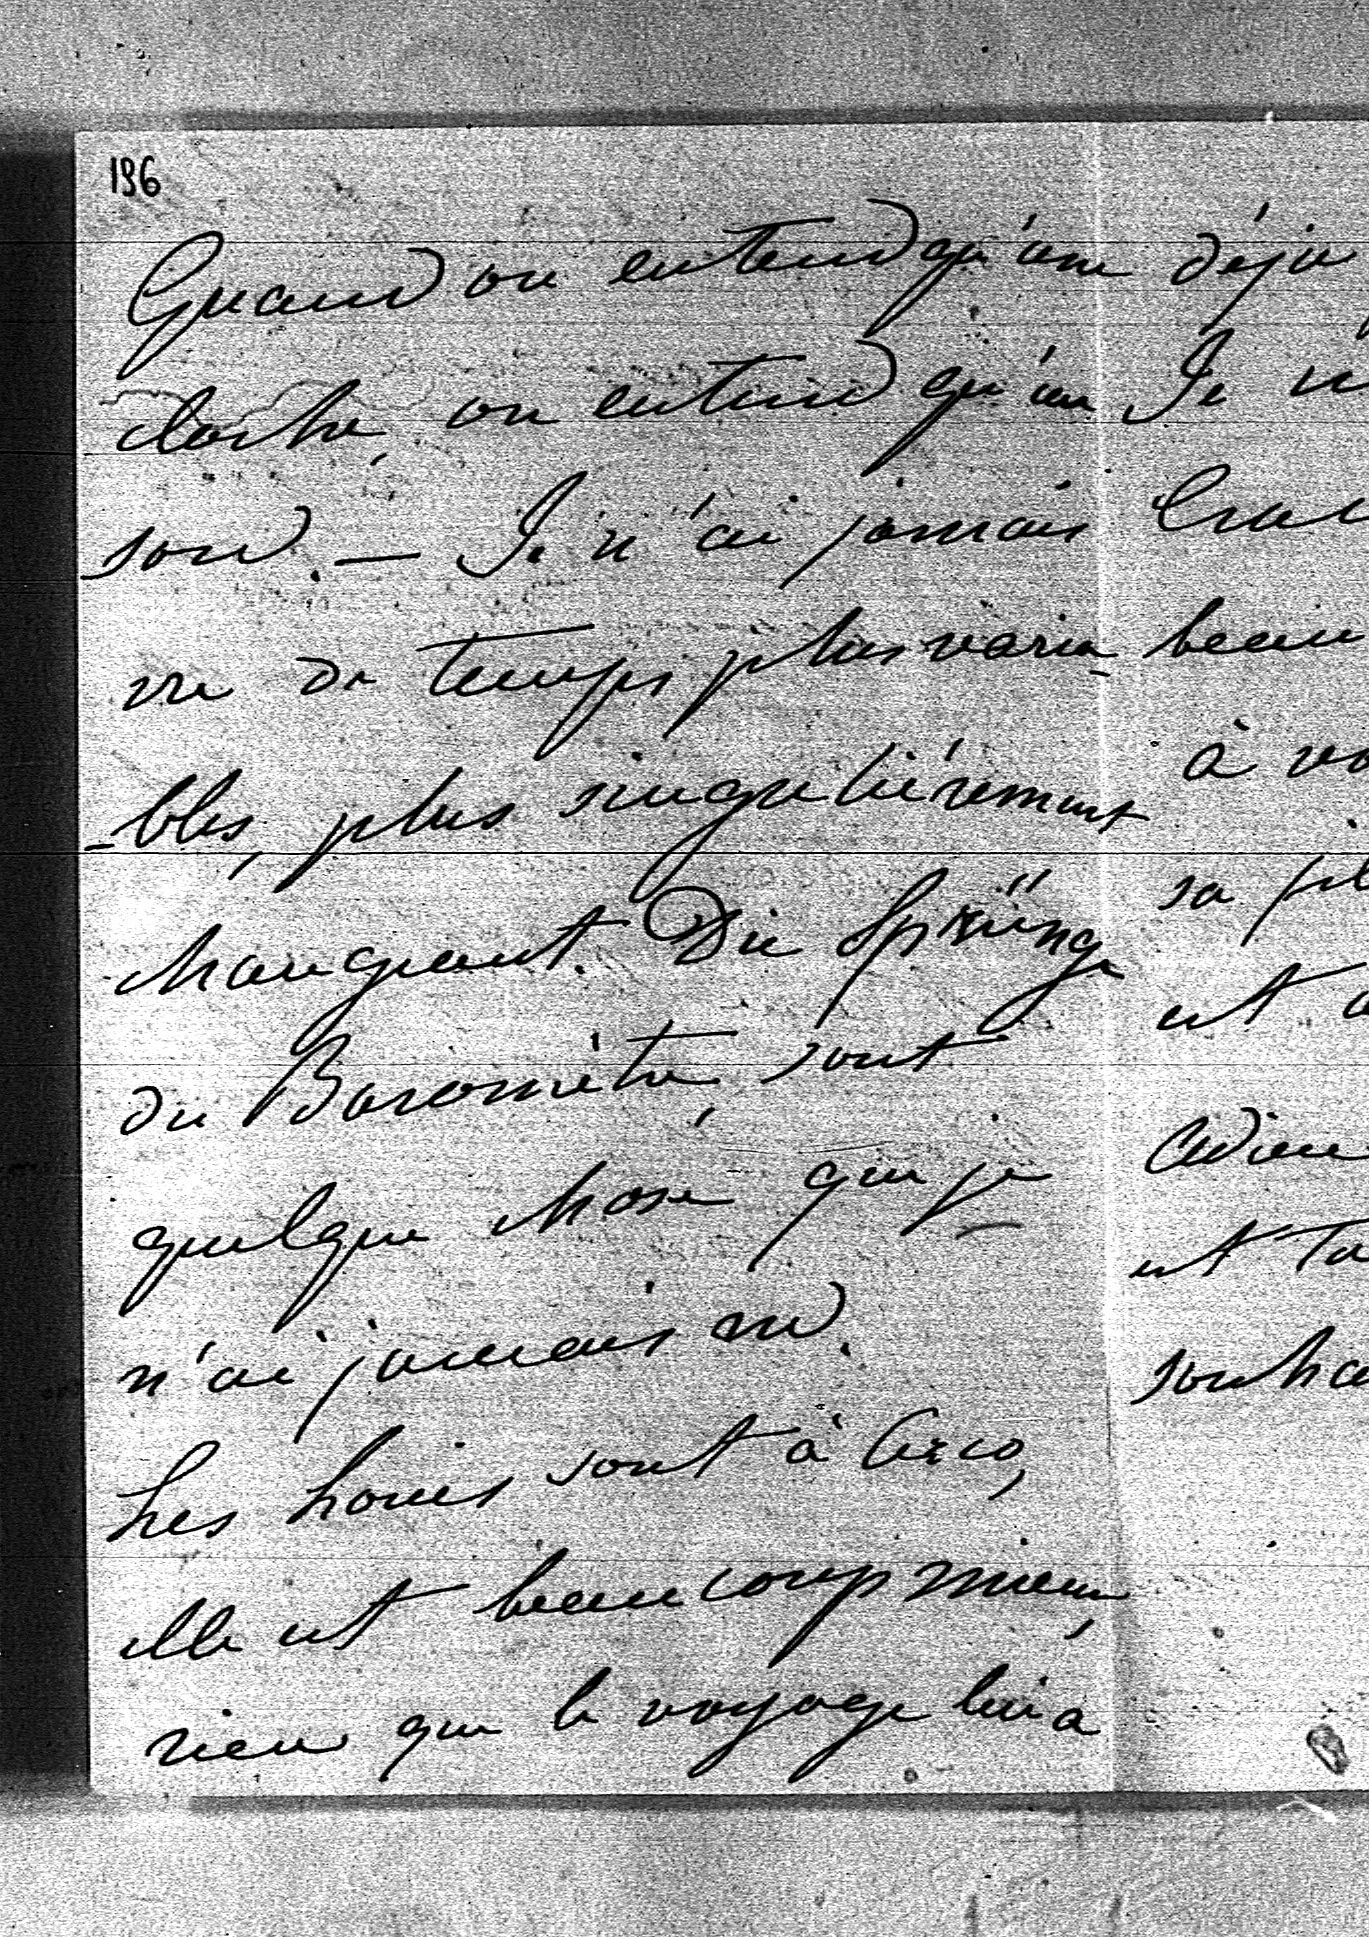 196
Quand on entend qu'une
cloche, on entend qu'un
son. — Je n'ai jamais
vu de temps plus varia-
-bles, plus singulièrement
changeant. Die Sprünge
du Baromètre, sont
quelque chose que je
n'ai jamais vu.
Les sont à Arco,
elle est beaucoup mieux,
rien que le voyage lui a
déja
Je n'
beau
à vo
sa
est
Adieu
et ta
souha